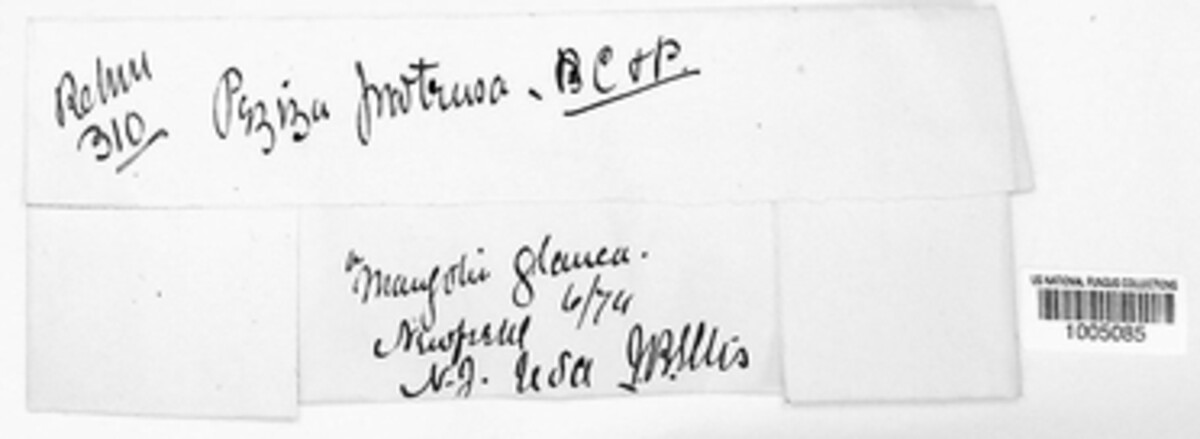 Rehm
310
Peziza protrusa. B C & P.
Mangolia glauca.
6/74
Newfield
N.J. USA J.B. Ellis
US NATIONAL FUNGUS COLLECTIONS
1005085